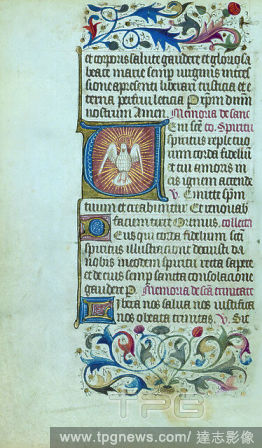 et corporis salute gaudere et gloriosa
beate marie semp virginis interces
sione a presenti liberari tristicia et e
terna perfrui leticia P dnm
nostrum Amen. Memoria de sanc
Eni sce to. Spiritu
spiritus reple tuo
rum corda fideliu
et tui amoris in
eis ignem accende
V. Emitte spm
tuum et creabuntur Et renovab
faciem terre Oremus. collecta
Deus qui corda fidelium sci
spiritus illustratione docuisti da
nobis in eodem spiritu recta sapere
et de eius semp sancta consolacione
gaudere P Memoria de sca trinitate
Libera nos salva nos iustifica
nos o beata trinitas. V. Sit
TPG
www.tpgnews.com / 達志影像